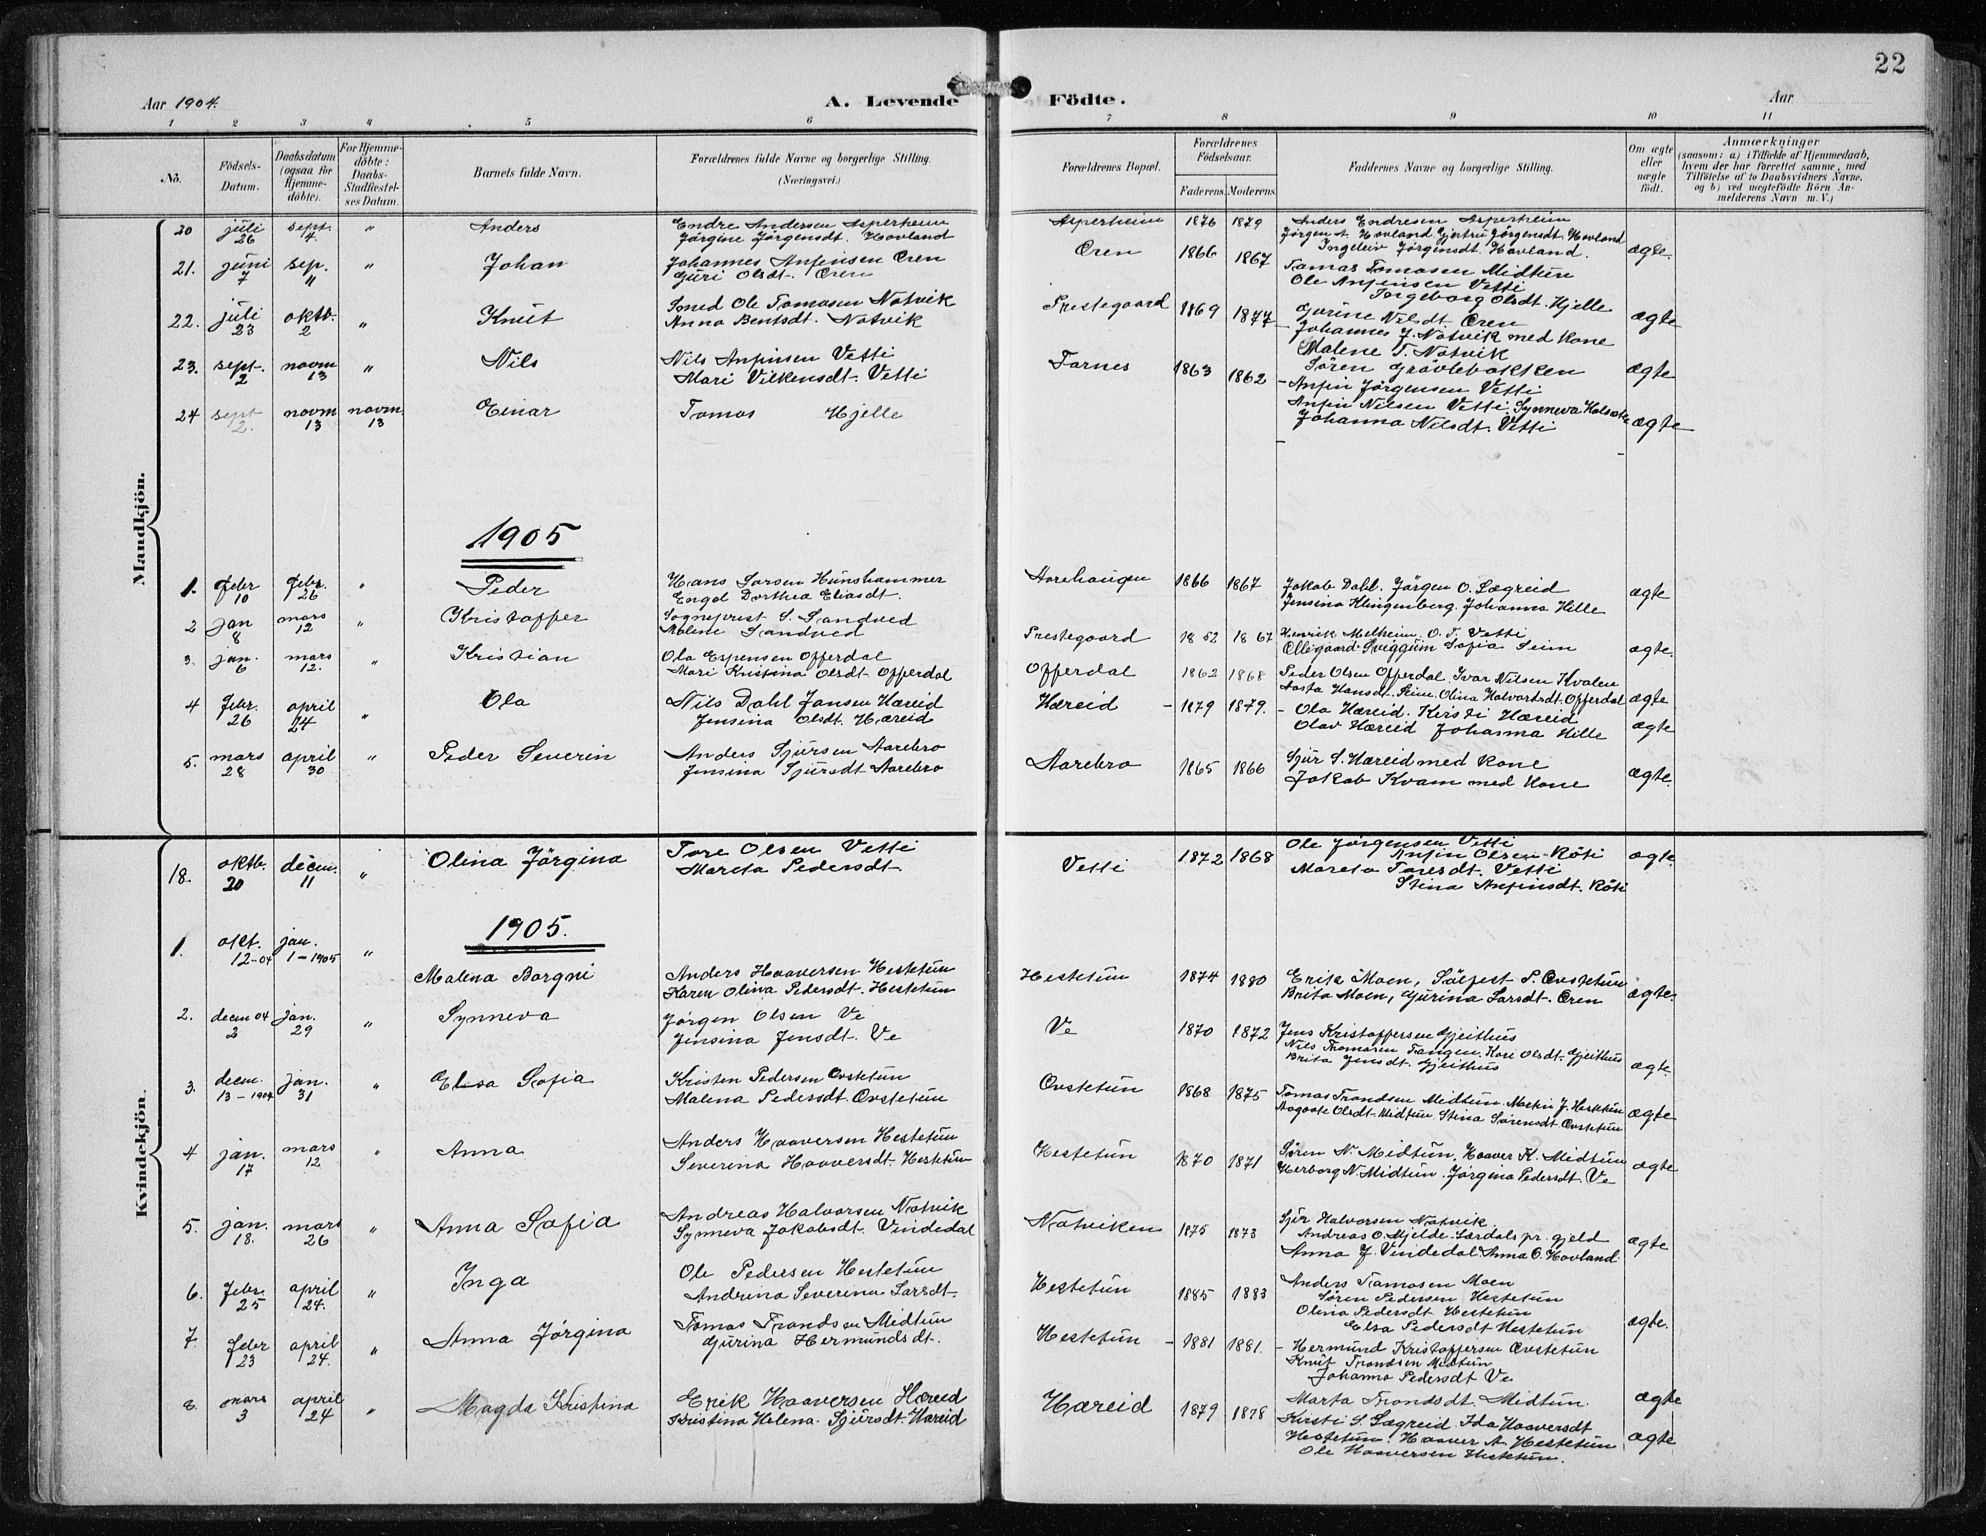 22
Aar 1904. A. Levende Födte. Aar
1 2 3 4 5 6 7 8 9 10 11
No. Födsels-Datum. Daabsdatum (ogsaa for Hjemme-döbte). For Hjemme-döbte: Daabs-Stadfæstel-ses Datum. Barnets fulde Navn. Forældrenes fulde Navne og borgerlige Stilling. (Næringsvei.) Forældrenes Bopæl. Forældrenes Födselsaar. Faderens. Moderens. Faddernes Navne og borgerlige Stilling. Om ægte eller uægte födt. Anmærkninger (saasom: a) i Tilfælde af Hjemmedaab, hvem der har forrettet samme, med Tilföielse af to Daabsvidners Navne, og b) ved uægtefödte Börn An-melderens Navn m. V.)
Mandkjön.
20 juli 26 sept. 4 " Anders Endre Andersen Asperheim Asperheim 1876 1879 Anders Endresen Asperheim
Jørgine Jørgensdt. Hovland Jørgen A. Hovland Gjertru Jørgensdt. Hovland
Ingeleiv Jørgensdt. Hovland. ægte.
21. juni 7 sep. " " Johan Johannes Anfinsen Øren Øren 1866 1867 Tomas Tomasen Midtun
Guri Olsdt. Øren Ole Anfinsen Vetti
Ingeborg Olsdt. Hjelle
22. juli 23 oktb. 2 " Knut Smed Ole Tomasen Natvik Prestegaard 1869 1877 Gurine Nilsdt. Øren ægte
Anna Bentsdt. Natvik Johannes J. Natvik med kone
Malene T. Natvik
23. sept. 2 novm 13 " Nils Nils Anfinsen Vetti Farnes 1863 1862 Søren Grøvlebakken ægte
Mari Vilkensdt. Vetti Anfin Jørgensen Vetti
24 sept 2. novm 13 novm 13 Einar Tomas Hjelle Anfin Nilsen Vetti, Synneva
Johanna Nilsdt. Vetti ægte
1905
1. febr 10 febr. 26 " Peder Hans Larsen Hunshammer 1866 1867 Jakob Dahl. Jørgen O. Lægreid ægte
Engel Dorthea Eliasdt. Jensina Klingenberg. Johanna Hille
2 jan 8 mars 12 " Kristoffer Sogneprest S. Sandved Prestegaard 1852 1867 Henrik Melheim. O. T. Vetti
Malene Sandved Ollegaard Sviggum Sofia Seim ægte.
3. jan. 6 mars 12. " Kristian Ola Espensen Offerdal Offerdal 1862 1868 Peder Olsen Offerdal. Ivar Nilsen Kvalen
Mari Kristina Olsdt. Offerdal Aasta Hansdt. Seim. Olina Halvorsdt. Offerdal ægte
4 febr. 26 april 24 " Ola Nils Dahl Jansen Hæreid Hæreid 1879 1879. Ola Hæreid. Kirsti Hæreid
Jensina Olsdt. Hæreid Olav Hæreid Johanna Hille ægte
5. mars 28 april 30 " Peder Severin Anders Sjursen Aarebro Aarebro 1865 1866 Sjur S. Hæreid med kone
Jensina Sjursdt Aarebro Jakob Kvam med kone ægte.
Kvindekjön.
18. oktb. 20 decem. 11 " Olina Jørgina Tore Olsen Vetti Vetti 1872 1868 Ole Jørgensen Vetti ægte.
Marta Pedersdt. Anfin Olsen Röti
Mareta Toresdt. Vetti
Stina Anfinsdt. Röti
1905.
1. okt. 12-04 jan. 1-1905 "
Malena Borgni Anders Haaversen Hestetun Hestetun 1874 1880 Erik Moen, S. Ovstetun
Karen Olina Pedersdt. Hestetun Brita Moen, Gurina Larsdt. Øren ægte.
2. decem 04 2 jan. 29 " Synneva Jørgen Olsen Ve Ve 1870 1872 Jens Kristoffersen Gjeithus
Jensina Jensdt. Ve Nils Tomasen Tangen. Kari Olsdt. Gjeithus
Brita Jensdt. Gjeithus ægte.
3. decm. 13-1904 jan. 31 " Elisa Sofia Kristen Pedersen Ovstetun Ovstetun 1868 1875 Tomas Trondsen Midtun. Martin J. Hestetun
Malena Pedersdt Ovstetun Olsdt. Midtun Stina Sørensdt Ovstetun ægte
4 jan. 17 mars 12 " Anna Anders Haaversen Hestetun Hestetun 1870 1871 Søren N. Midtun, Haaver K. Midtun
Severina Haaversdt. Hestetun Herborg N. Midtun. Jørgina Pedersdt. Ve ægte
5. jan. 18. mars 26 " Anna Sofia Andreas Halvorsen Natvik Natviken 1875 1873 Sjur Halvorsen Natvik.
Synneva Jakobsdt. Vindedal Andreas O. Mjelde. Lærdals pr. gjeld
Anna J. Vindedal Anna O. Hovland. ægte
6. febr. 25 april 24. " Inga Ole Pedersen Hestetun Hestetun 1885 1883 Anders Tomasen Moen
Andrina Severina Larsdt. Søren Pedersen Hestetun
Olina Pedersdt Hestetun
Elsa Pedersdt Hestetun ægte.
7. febr 23 april 24. " Anna Jørgina Tomas Trondsen Midtun Hestetun 1881 1881. Hermund Kristoffersen Ovstetun
Gjurina Hermundsdt. Knut Trondsen Midtun
Johanna Pedersdt Ve
Marta Trondsdt. Midtun ægte
8 mars 3 april 24 " Magda Kristina Erik Haaversen Hæreid Hæreid 1879 1878
Kristina Helena Sjursdt. Hæreid Kirsti S. Lægreid Ida Haaversdt
Hestetun. Haaver A. Hestetun ægte
Ole Haaversen Hestetun.